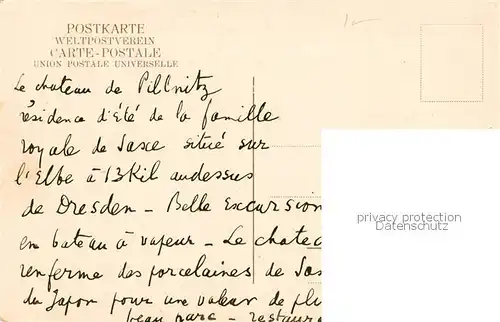 POSTKARTE
WELTPOSTVEREIN
CARTE-POSTALE
UNION POSTALE UNIVERSELLE
Le chateau de Pillnitz
résidence d'été de la famille
royale de Saxe situé sur
l'Elbe à 13 Kil audessus
de Dresden - Belle excursion
en bateau à vapeur - Le chatea
renferme des porcelaines de Sax
du Japon pour une valeur de plu
beau parc - restaura
privacy protection
Datenschutz